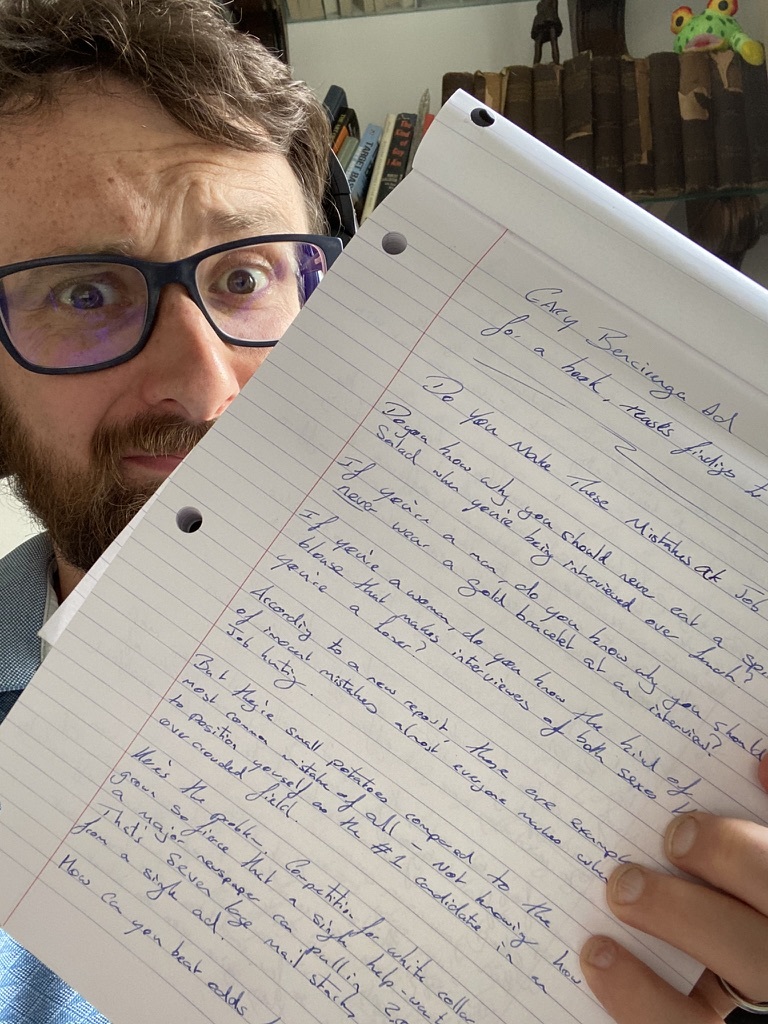 TARGET
Gary Bencivenga Ad
for a book, teases findings to
Do You Make These Mistakes at Job
Do you know why you should never eat a
Salad when you're being interviewed over lunch?
If you're a man, do you know why you should
never wear a gold bracelet at an interview?
If you're a woman, do you know the kind of
blouse that makes interviewers of both sexes
you're a loser?
According to a new report, these are example
of inocent mistakes almost everyone makes when
Job hunting.
But they're small potatoes compared to the
most common mistake of all - Not knowing how
to position yourself as the #1 candidate in an
over crowded field.
Here's the problem. Competition for white collar
grown so fierce that a single help-want
a major newspaper can pulling
That's seven large mail stacks
from a single ad.
How can you beat odds